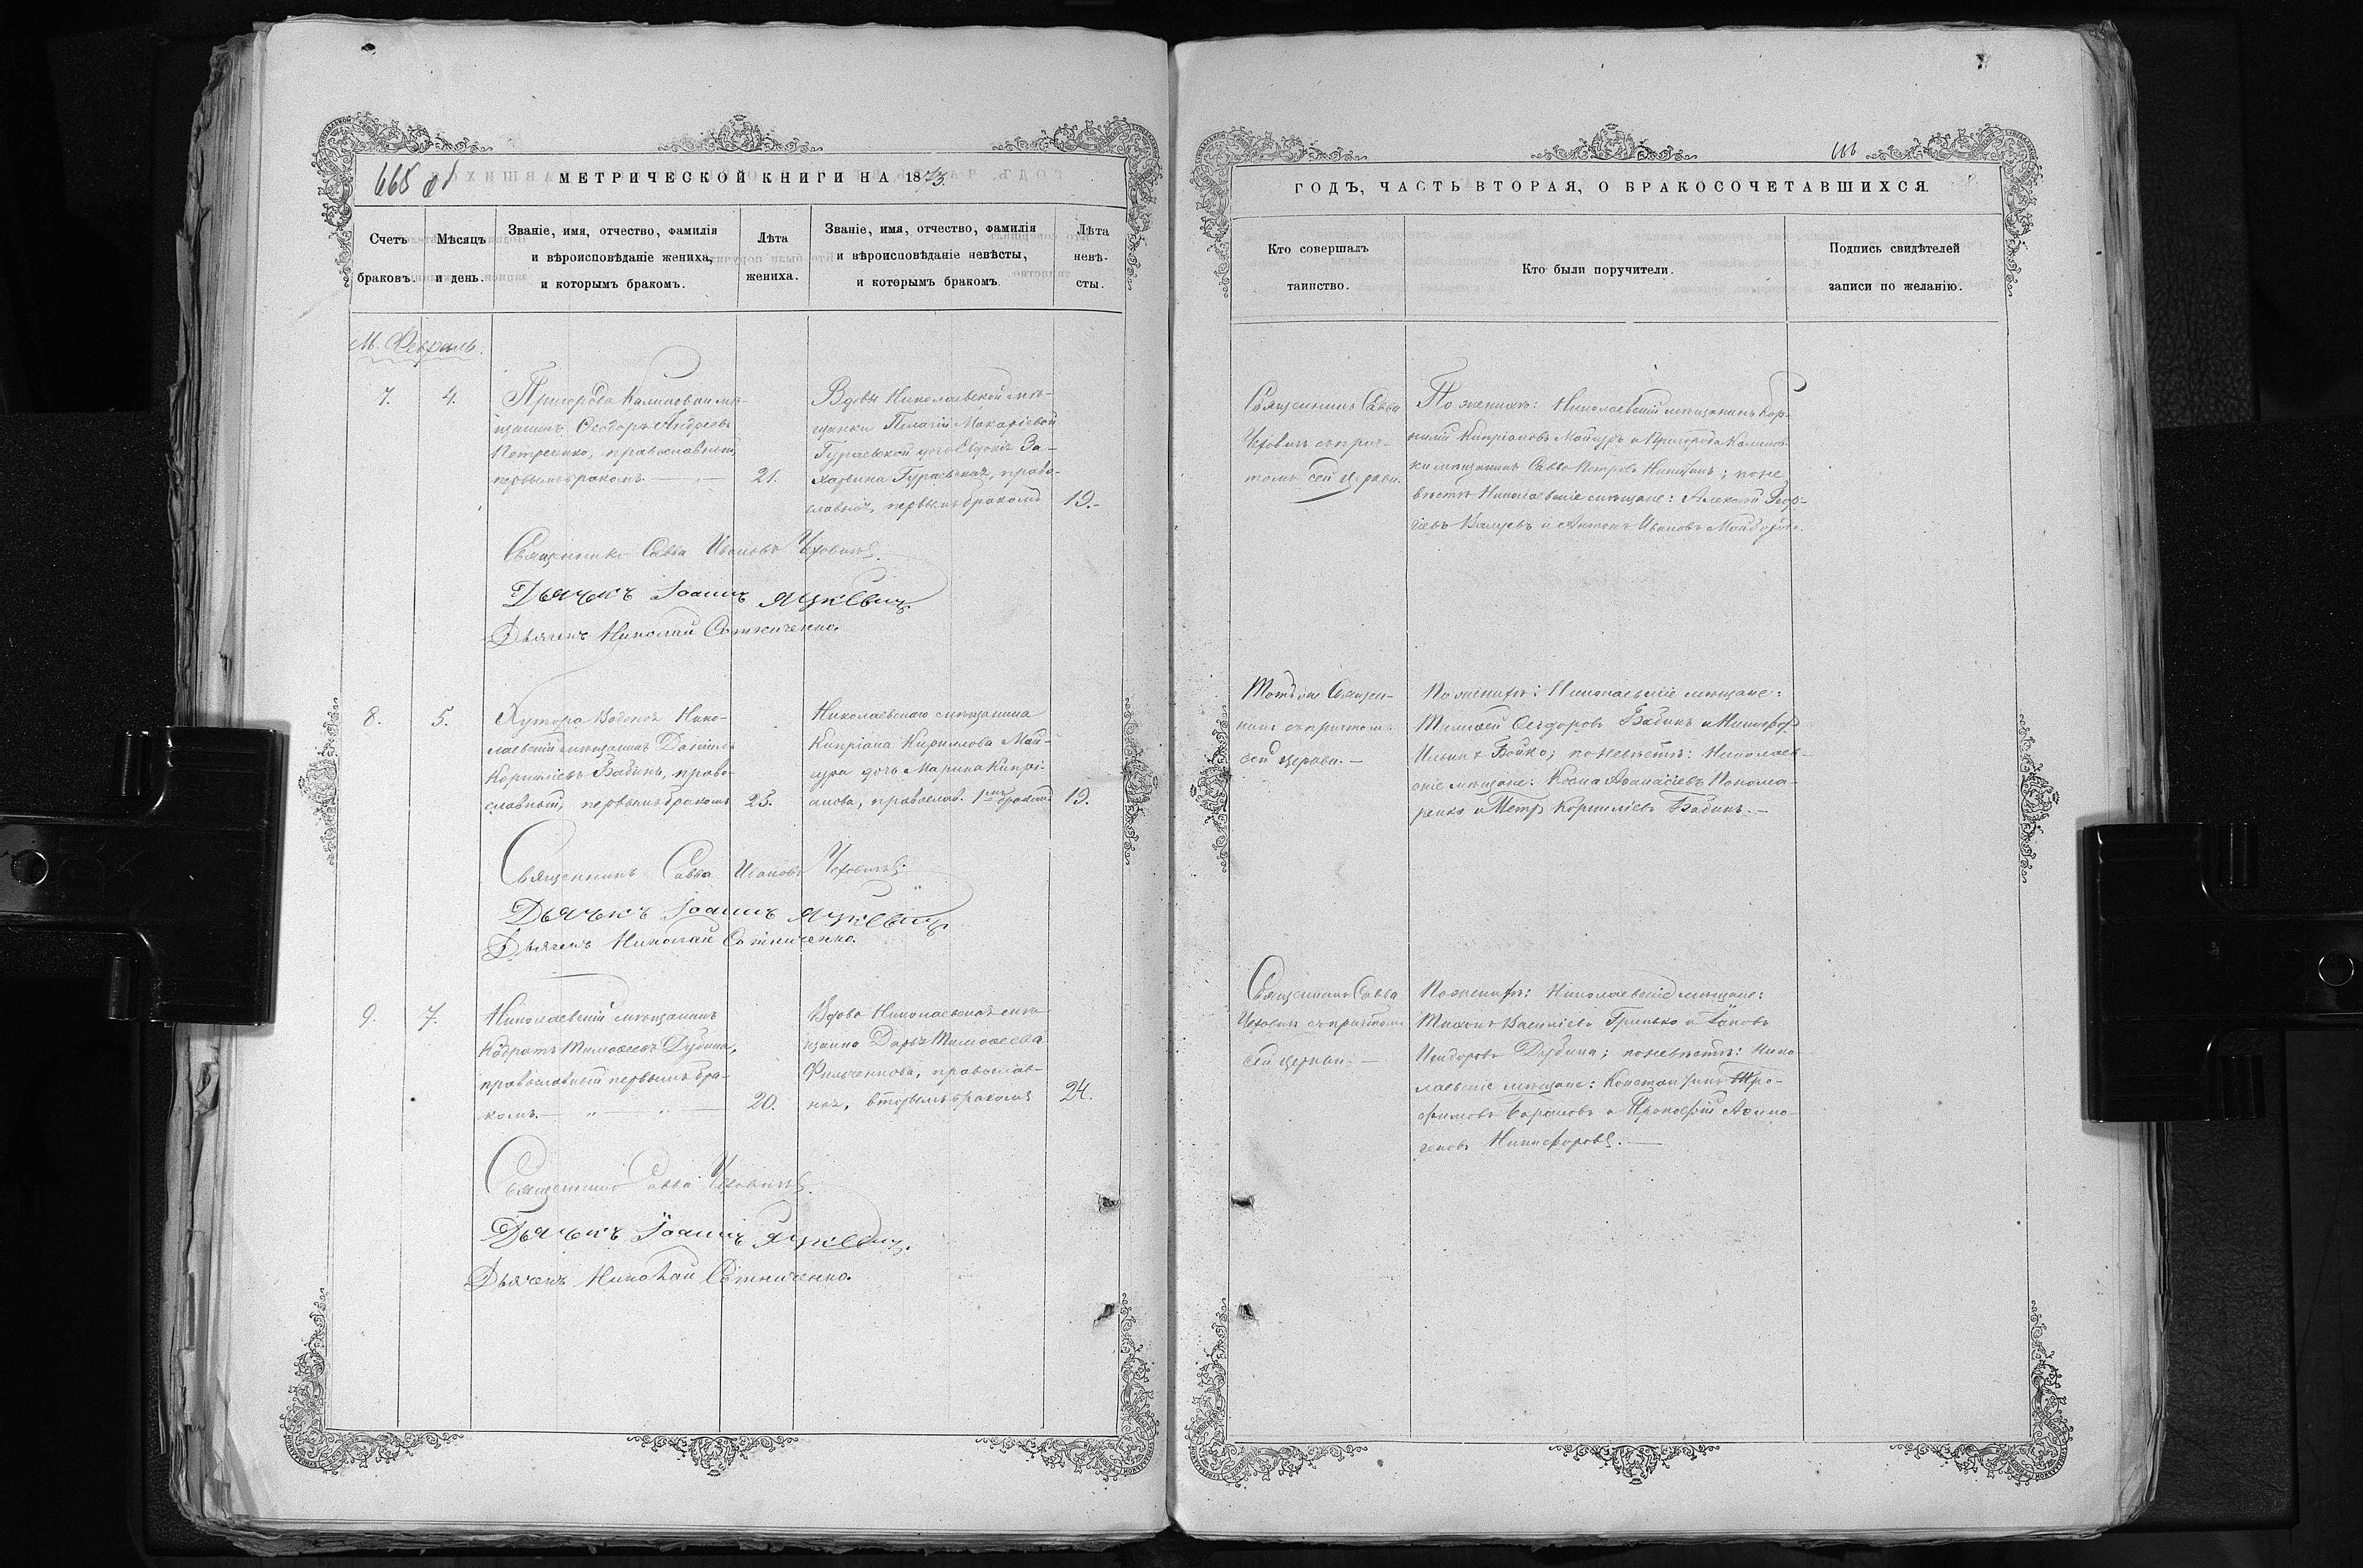 665 об
МЕТРИЧЕСКОЙ КНИГИ НА 1873.
Счетъ
браковъ.
Мѣсяцъ
и день.
Званіе, имя, отчество, фамилія
и вѣроисповѣданіе жениха,
и которымъ бракомъ.
Лѣта
жениха.
Званіе, имя, отчество, фамилія
и вѣроисповѣданіе невѣсты,
и которымъ бракомъ.
Лѣта
невѣ-
сты.
М. Февраль.
7.
4.
Пригорода Калиновки мѣ-
щанинъ Ѳеодоръ Андреевъ
Петренко, православный,
первымъ бракомъ.
21.
Вдовы Николаевской мѣ-
щанки Пелагіи Макаріевой
Гураевской дочь Евдокія За-
харьина Гураевская, право-
славная, первымъ бракомъ
19.
Священникъ Савва Ивановъ Чеховичъ.
Дьячокъ Іоаннъ Яцкевич.
Дьячекъ Николай Сотниченко.
8.
5.
Хутора Водопоя Нико-
лаевскій мѣщанинъ Даніилъ
Корниліевъ Бабинъ, право-
славный, первымъ бракомъ
25.
Николаевскаго мѣщанина
Кипріана Кириллова Май-
дочь Марина Кипрі-
анова, православ. 1мъ бракомъ
19.
Священникъ Савва Ивановъ Чеховичъ.
Дьячокъ Іоаннъ Яцкевич.
Дьячекъ Николай Сотниченко.
9.
7.
Николаевскій мѣщанинъ
Кодратъ Тимоѳеевъ Дубина,
православный первымъ бра-
комъ.
20.
Вдова Николаевская мѣ-
щанка Дарья Тимоѳеева
Фильченкова, православ-
ная, вторымъ бракомъ
24.
Священникъ Савва Чеховичъ.
Дьячокъ Іоаннъ Яцкевич.
Дьячекъ Николай Сотниченко.
666
ГОДЪ, ЧАСТЬ ВТОРАЯ, О БРАКОСОЧЕТАВШИХСЯ.
Кто совершалъ
таинство.
Кто были поручители.
Подпись свидѣтелей
записи по желанію.
Священникъ Савва
Чеховичъ съ прич-
томъ сей церкви.
По женихѣ: Николаевскій мѣщанинъ Кор-
нилій Кипріановъ и Пригорода Калинов-
ки мѣщанинъ Савва Петровъ Никитинъ; по не-
вѣстѣ Николаевскіе мѣщане: Алексѣй Геор-
гіевъ и Антонъ Ивановъ
Тотъ же Священ-
никъ съ причтомъ
сей церкви.
По женихѣ: Николаевскіе мѣщане:
Тимоѳей Ѳеодоровъ Бабинъ и Никифоръ
Ильинъ Бойко; по невѣстѣ: Николаев-
скіе мѣщане: Косма Аѳанасіевъ Понома-
ренко и Петръ Корниліевъ Бабинъ.
Священникъ Савва
Чеховичъ съ причтомъ
сей церкви.
По женихѣ: Николаевскіе мѣщане:
Тихонъ Василіевъ Гринько и Іаковъ
Исидоровъ Дубина; по невѣстѣ: Нико-
лаевскіе мѣщане: Константинъ Тро-
фимовъ Барановъ и Прокофій Аѳино-
геновъ Никифоровъ.